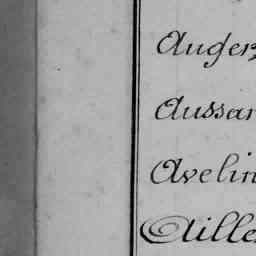 Auger
Aussar
Avelin
Aille